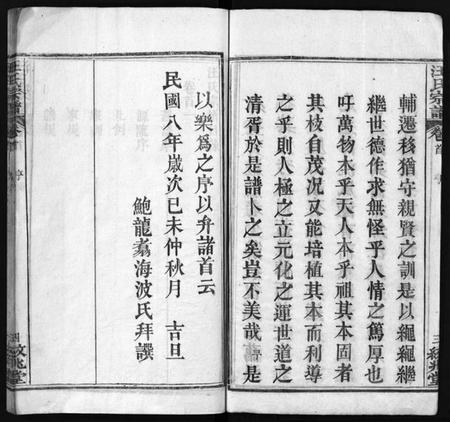 汪氏宗譜
卷首
序
三
輔遷移猶守親賢之訓是以繩繩繼
繼世德作求無怪乎人情之篤厚也
吁萬物本乎天人本乎祖其本固者
其枝自茂况又能培植其本而利導
之乎則人極之立元化之運世道之
清胥於是譜卜之矣豈不美哉是
以樂為之序以弁諸首云
民國八年歲次己未仲秋月 吉旦
鮑龍翥海波氏拜譔
汪氏宗譜
卷首
序
四